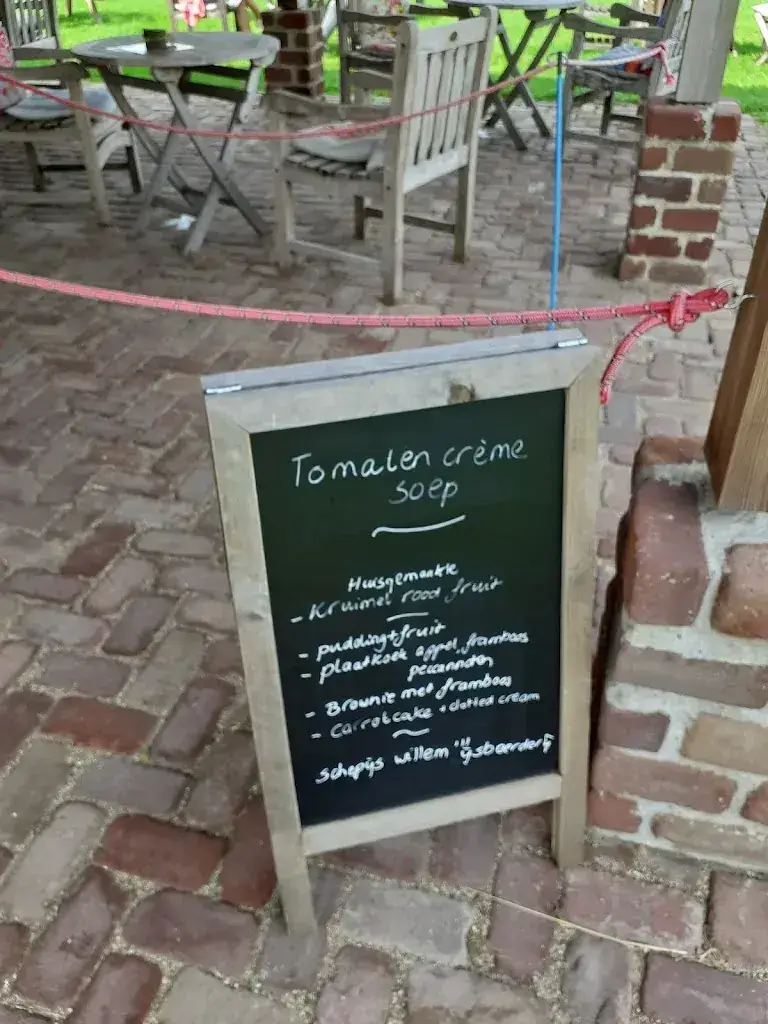 Tomaten crème
soep
Huisgemaakte
- Kruimel rood fruit
- pudding+fruit
- plaatkoek appel, framboos
pecannoten
- Brownie met framboos
- carrotcake + clotted cream
Schepijs willem ijsboerderij